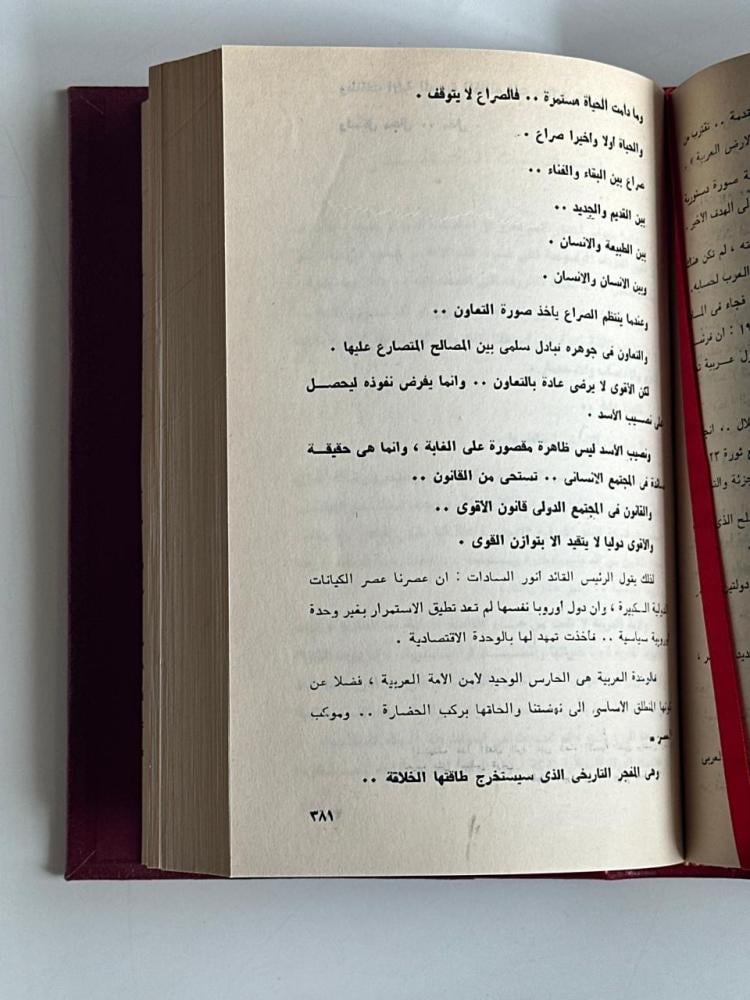 وما دامت الحياة مستمرة .. فالصراع لا يتوقف .
والحياة اولا واخيرا صراع .
صراع بين البقاء والفناء ..
بين القديم والجديد ..
بين الطبيعة والانسان .
وبين الانسان والانسان .
وعندما ينتظم الصراع ياخذ صورة التعاون ..
والتعاون فى جوهره تبادل سلمى بين المصالح المتصارع عليها .
لكن الأقوى لا يرضى عادة بالتعاون .. وانما يفرض نفوذه ليحصل
على نصيب الأسد .
ونصيب الأسد ليس ظاهرة مقصورة على الغابة ، وانما هى حقيقة
سائدة فى المجتمع الانسانى .. تستحى من القانون ..
والقانون فى المجتمع الدولى قانون الأقوى ..
والاقوى دوليا لا يتقيد الا بتوازن القوى .
لذلك يقول الرئيس القائد أنور السادات : ان عصرنا عصر الكيانات
الدولية الكبيرة ، وان دول أوروبا نفسها لم تعد تطيق الاستمرار بغير وحدة
أوروبية سياسية .. فأخذت تمهد لها بالوحدة الاقتصادية .
فالوحدة العربية هى الحارس الوحيد لأمن الأمة العربية ، فضلا عن
كونها المنطلق الأساسى الى نهضتنا والحاقها بركب الحضارة .. وموكب
العصر .
وهى المفجر التاريخى الذى سيستخرج طاقتها الخلاقة ..
٣٨١
قدمة .. تقترب من
الارض العربية » .
صورة دستورية
الى الهدف الأخير .
لم تكن هناك
العرب لحسابه
فجاء فى
ان فرنسا
عربية
ثورة ٢٣
دولتين